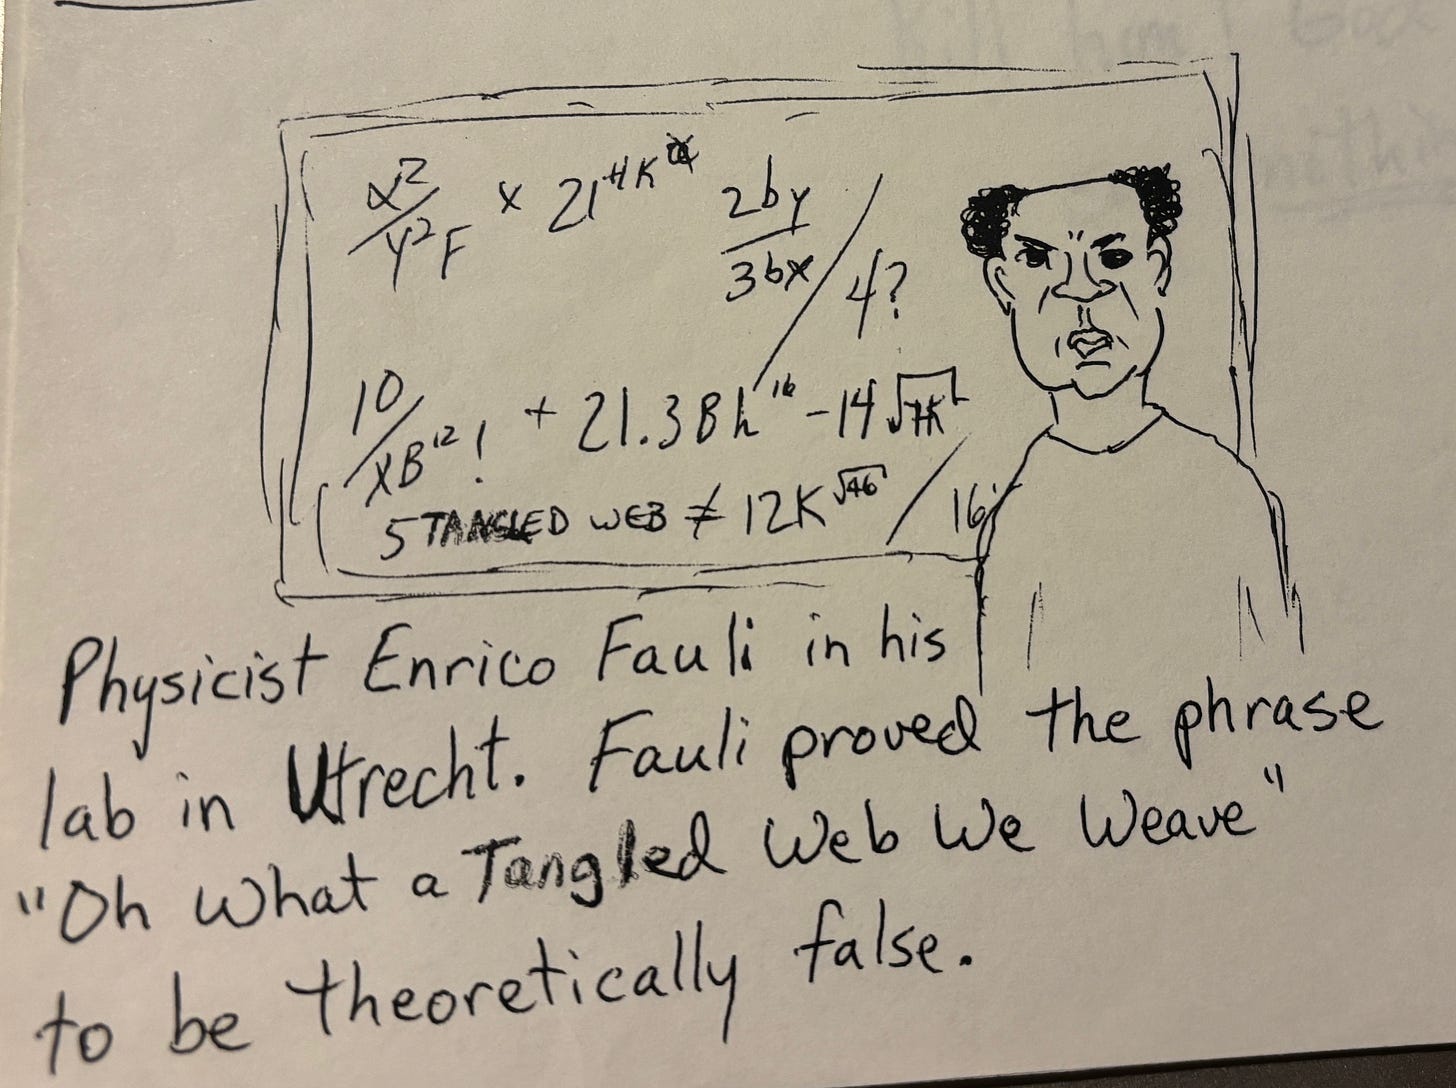 x²/y²F x 21 2by/3bx / 4?
10/xB¹²! + 21.38h¹⁶ -14√
5 TANGLED WEB ≠ 12K^√46 / 16
Physicist Enrico Fauli in his
lab in Utrecht. Fauli proved the phrase
"Oh What a Tangled Web We Weave"
to be theoretically false.